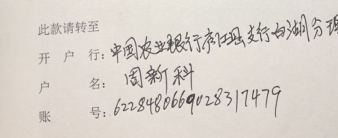 此款请转至
开 户 行：中国农业银行庐江县支行白湖分理
户 名：周新科
账 号：6228480669028317479